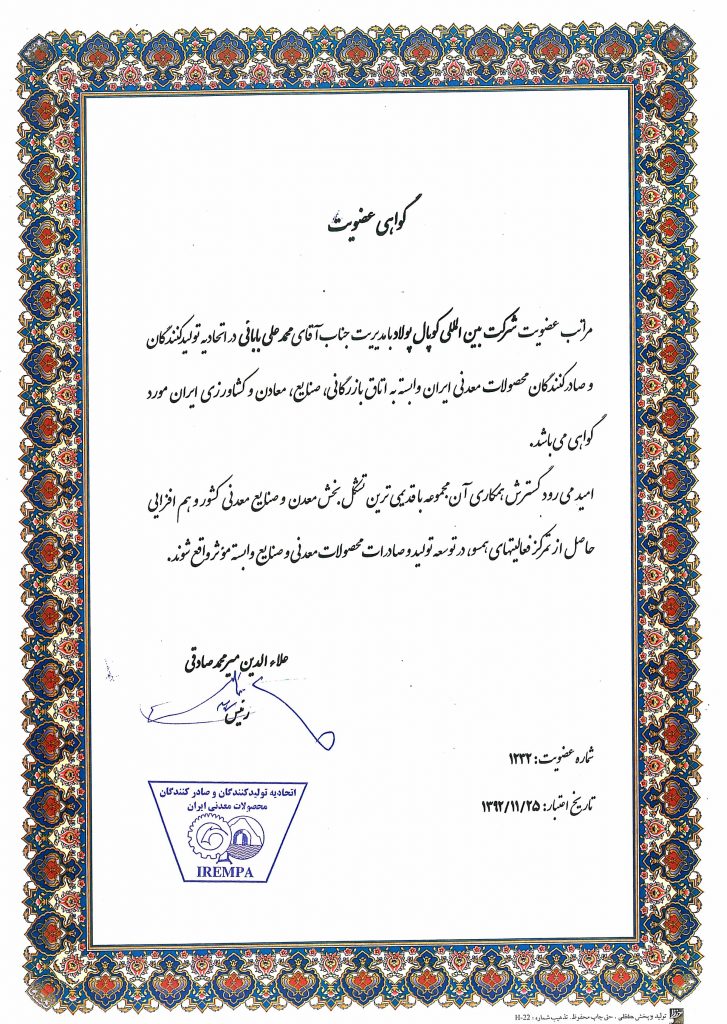 گواهی عضویت
مراتب عضویت شرکت بین المللی کوپال پولاد با مدیریت جناب آقای محمد علی بابائی در اتحادیه تولیدکنندگان
و صادرکنندگان محصولات معدنی ایران وابسته به اتاق بازرگانی، صنایع، معادن و کشاورزی ایران مورد
گواهی می باشد.
امید می رود گسترش همکاری آن مجموعه با قدیمی ترین تشکل بخش معدن و صنایع معدنی کشور و هم افزایی
حاصل از تمرکز فعالیتهای همسو، در توسعه تولید و صادرات محصولات معدنی و صنایع وابسته مؤثر واقع شوند.
علاء الدین میرمحمد صادقی
رئیس
شماره عضویت: ۱۲۳۲
تاریخ اعتبار: ۱۳۹۲/۱۱/۲۵
اتحادیه تولیدکنندگان و صادر کنندگان
محصولات معدنی ایران
IREMPA
تولید و پخش حافظی . حق چاپ محفوظ. تذهیب شماره : H-22